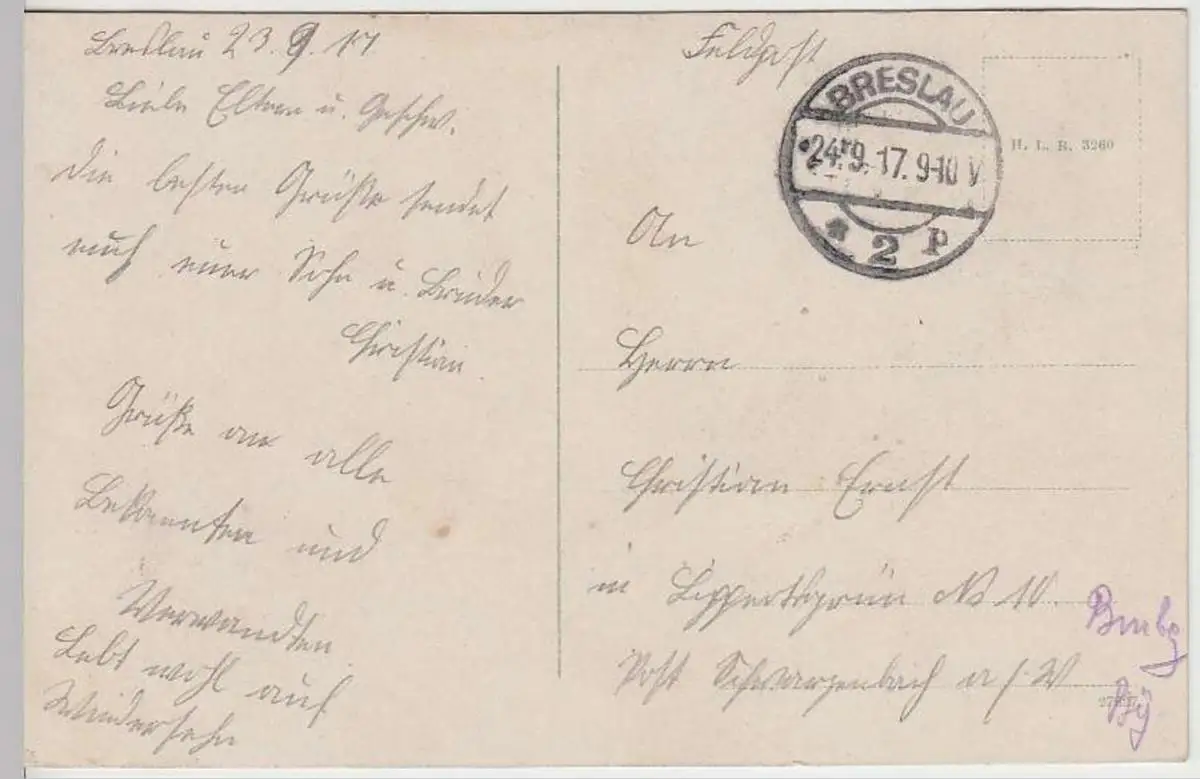 Breslau 23.9.17
Liebe Eltern u. Geschw.
die besten Grüße sendet
euch euer Sohn u. Bruder
Christian
Grüße an alle
Bekannten und
Verwandten
Lebt wohl auf
Wiedersehn
Feldpost
BRESLAU
24.9.17. 9-10 V
* 2 p
H. L. R. 3260
An
Herrn
Christian Ernst
in Lippertsgrün No 10.
Post Schwarzenbach a/W
Bmbg
By